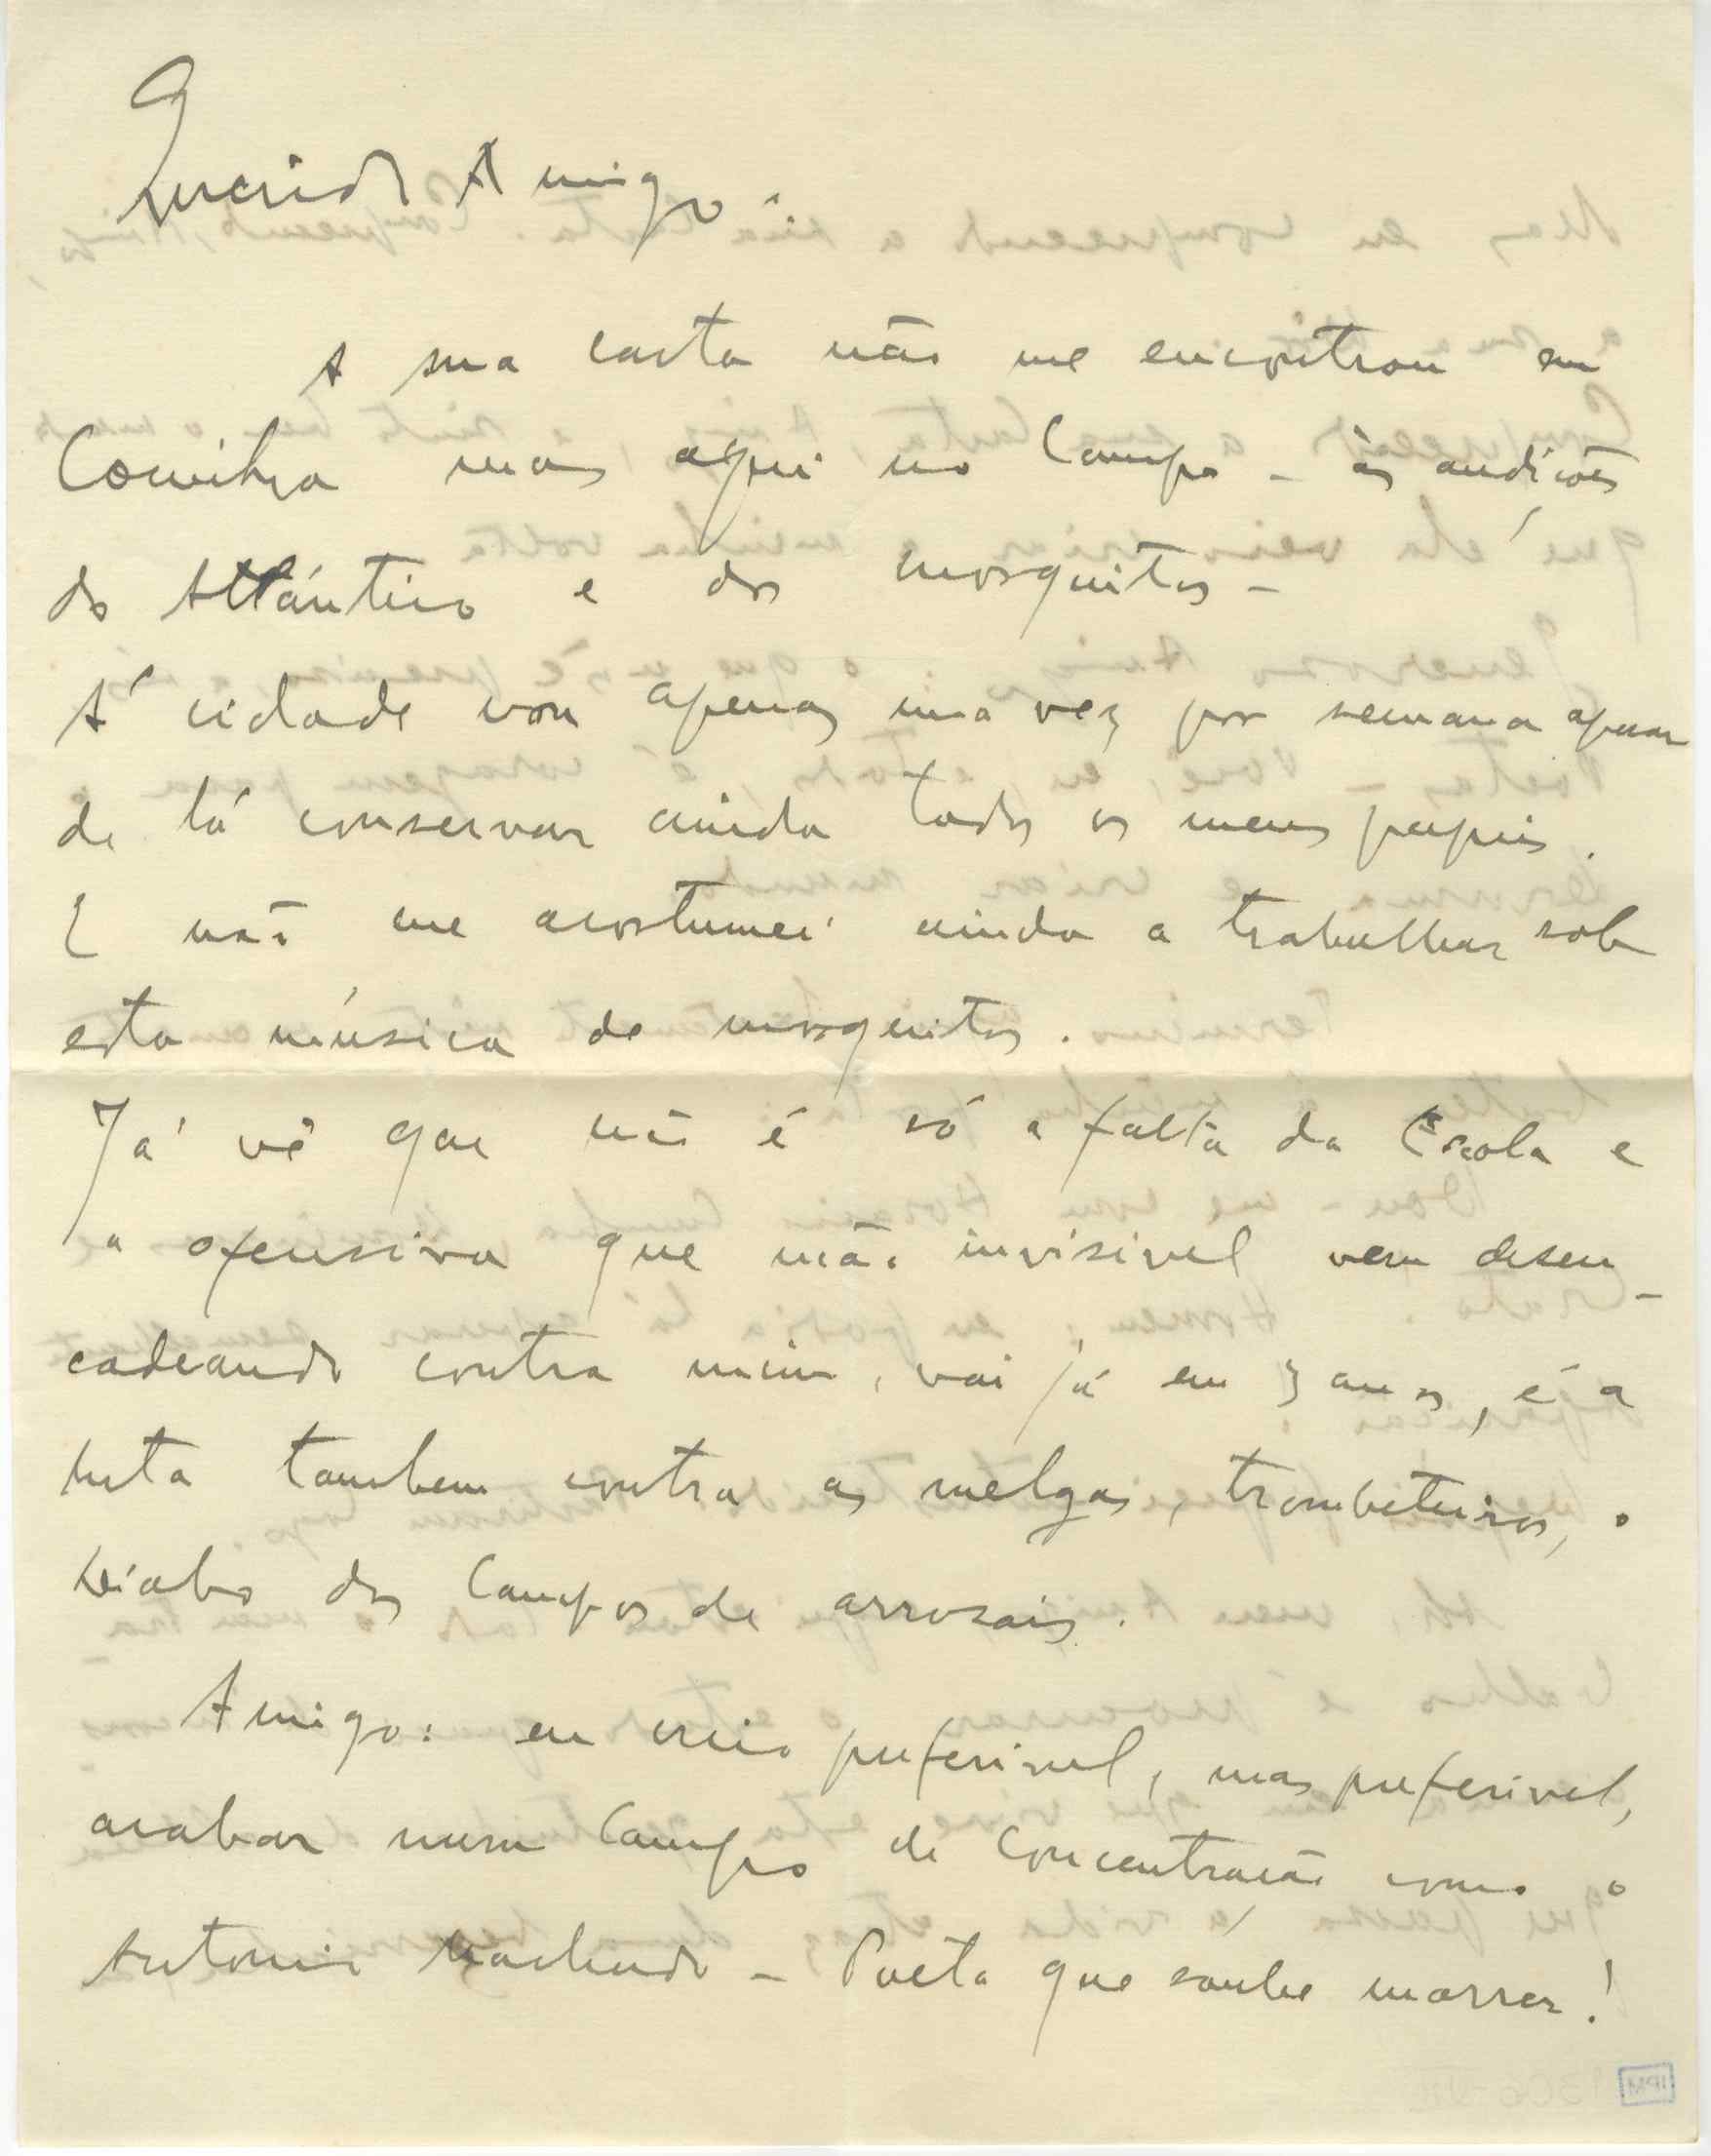 Querido Amigo.
A sua carta não me encontrou em
Coimbra mas aqui no Campo – às audições
do Atlántico e dos mosquitos –
A' cidade vou apenas uma vez por semana apesar
de lá conservar ainda todos os meus papeis.
E não me acostumei ainda a trabalhar sob
esta música de mosquitos.
Já vê que não é só a falta da Escola e
a ofensiva que mão invisivel vem desen-
cadeando contra mim, vai já em 3 anos, é a
luta tambem contra as melgas, trombeteiros, o
Diabo dos Campos de arrosais.
Amigo: eu creio preferivel, mas preferivel,
acabar num Campo de Concentração como o
Antonio Machado – Poeta que soube morrer!
IPM